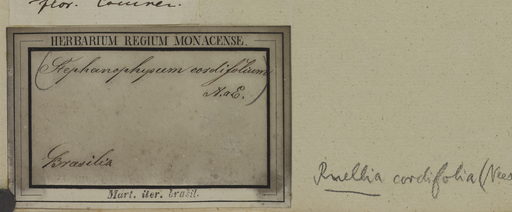 flor.
HERBARIUM REGIUM MONACENSE.
(Stephanophysum cordifolium)
N.aE.
Brasilia
Mart. iter. brasil.
Ruellia cordifolia (Nees